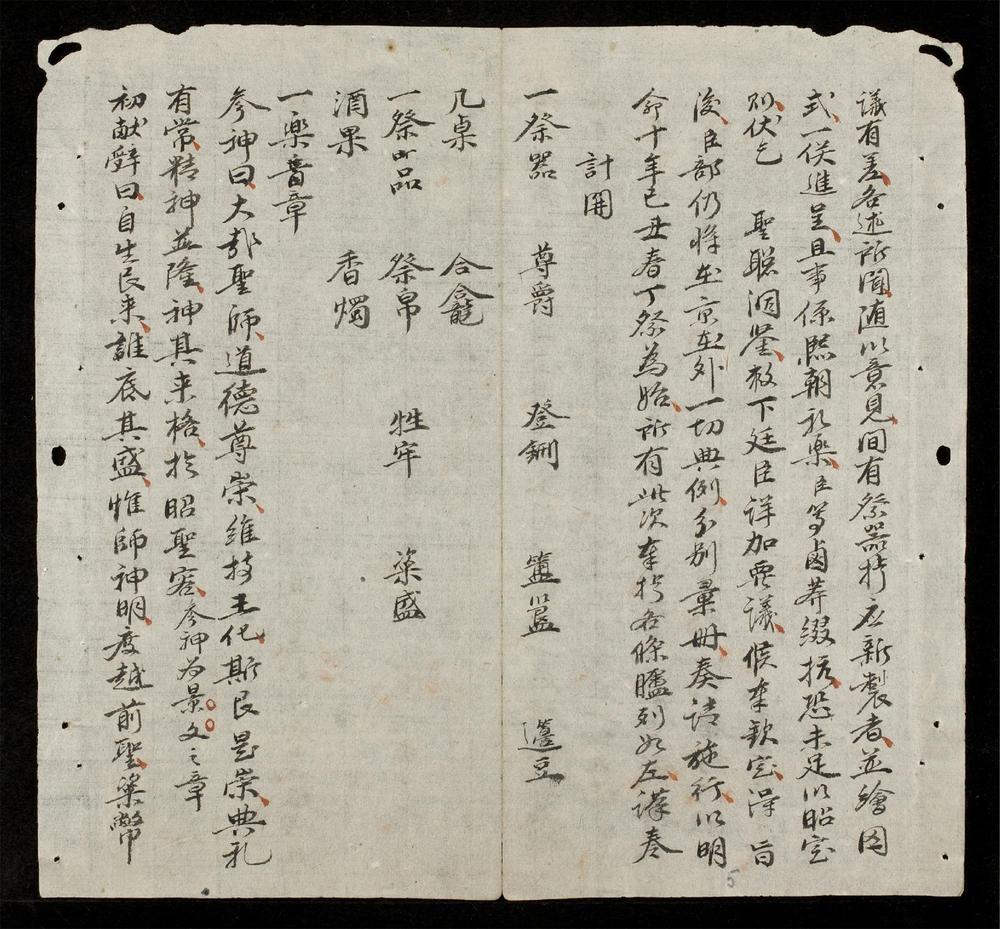 議有差各述所聞随以意見間有祭器折应新製者並繪图
式一併進呈且事係熙朝礼樂臣等鹵莽綴拾恐未足以昭定
則伏乞 聖聪洞鉴敕下廷臣详加要議候奉欽定得旨
後臣部仍将在京在外一切典例分别彙册奏請施行以明
命十年己丑春丁祭為始所有此次奉折各條臚列如左谨奏
計開
一祭器 尊爵 登鉶 簠簋 籩豆
几桌 合龕
一祭品 祭帛 牲牢 粢盛
酒果 香燭
一樂音章
参神曰大哉聖師道德尊崇維持王化斯民是崇典礼
有常精神並隆神其来格於昭聖容参神为景文之章
初献辞曰自生民来誰底其盛惟師神明度越前聖粢幣
5